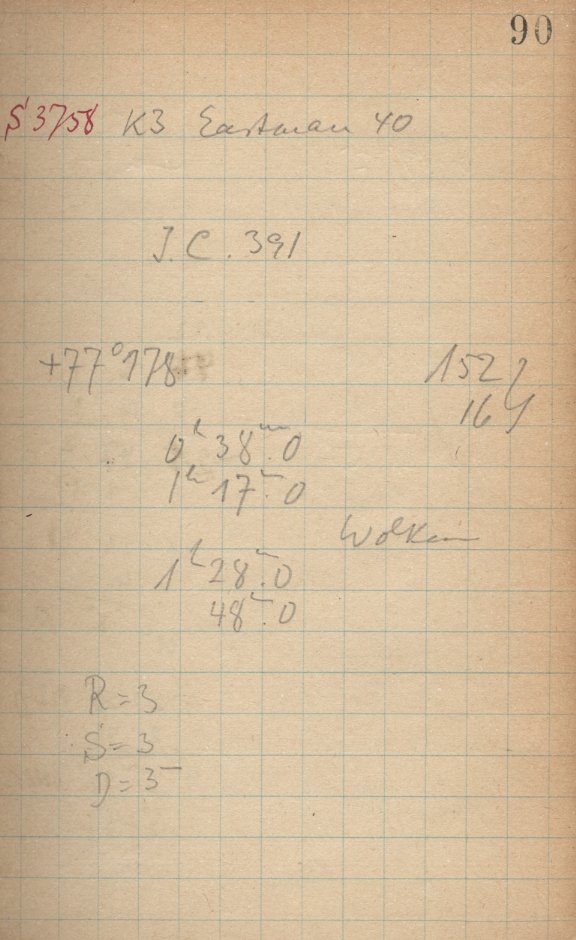 90
S 3758 K3 Eastman 40
J.C. 391
+77° 178
152
16
0ʰ 38ᵐ.0
1ʰ 17ᵐ.0
Wolken
1ʰ 28ᵐ.0
48ᵐ.0
R = 3
S = 3
D = 3⁻